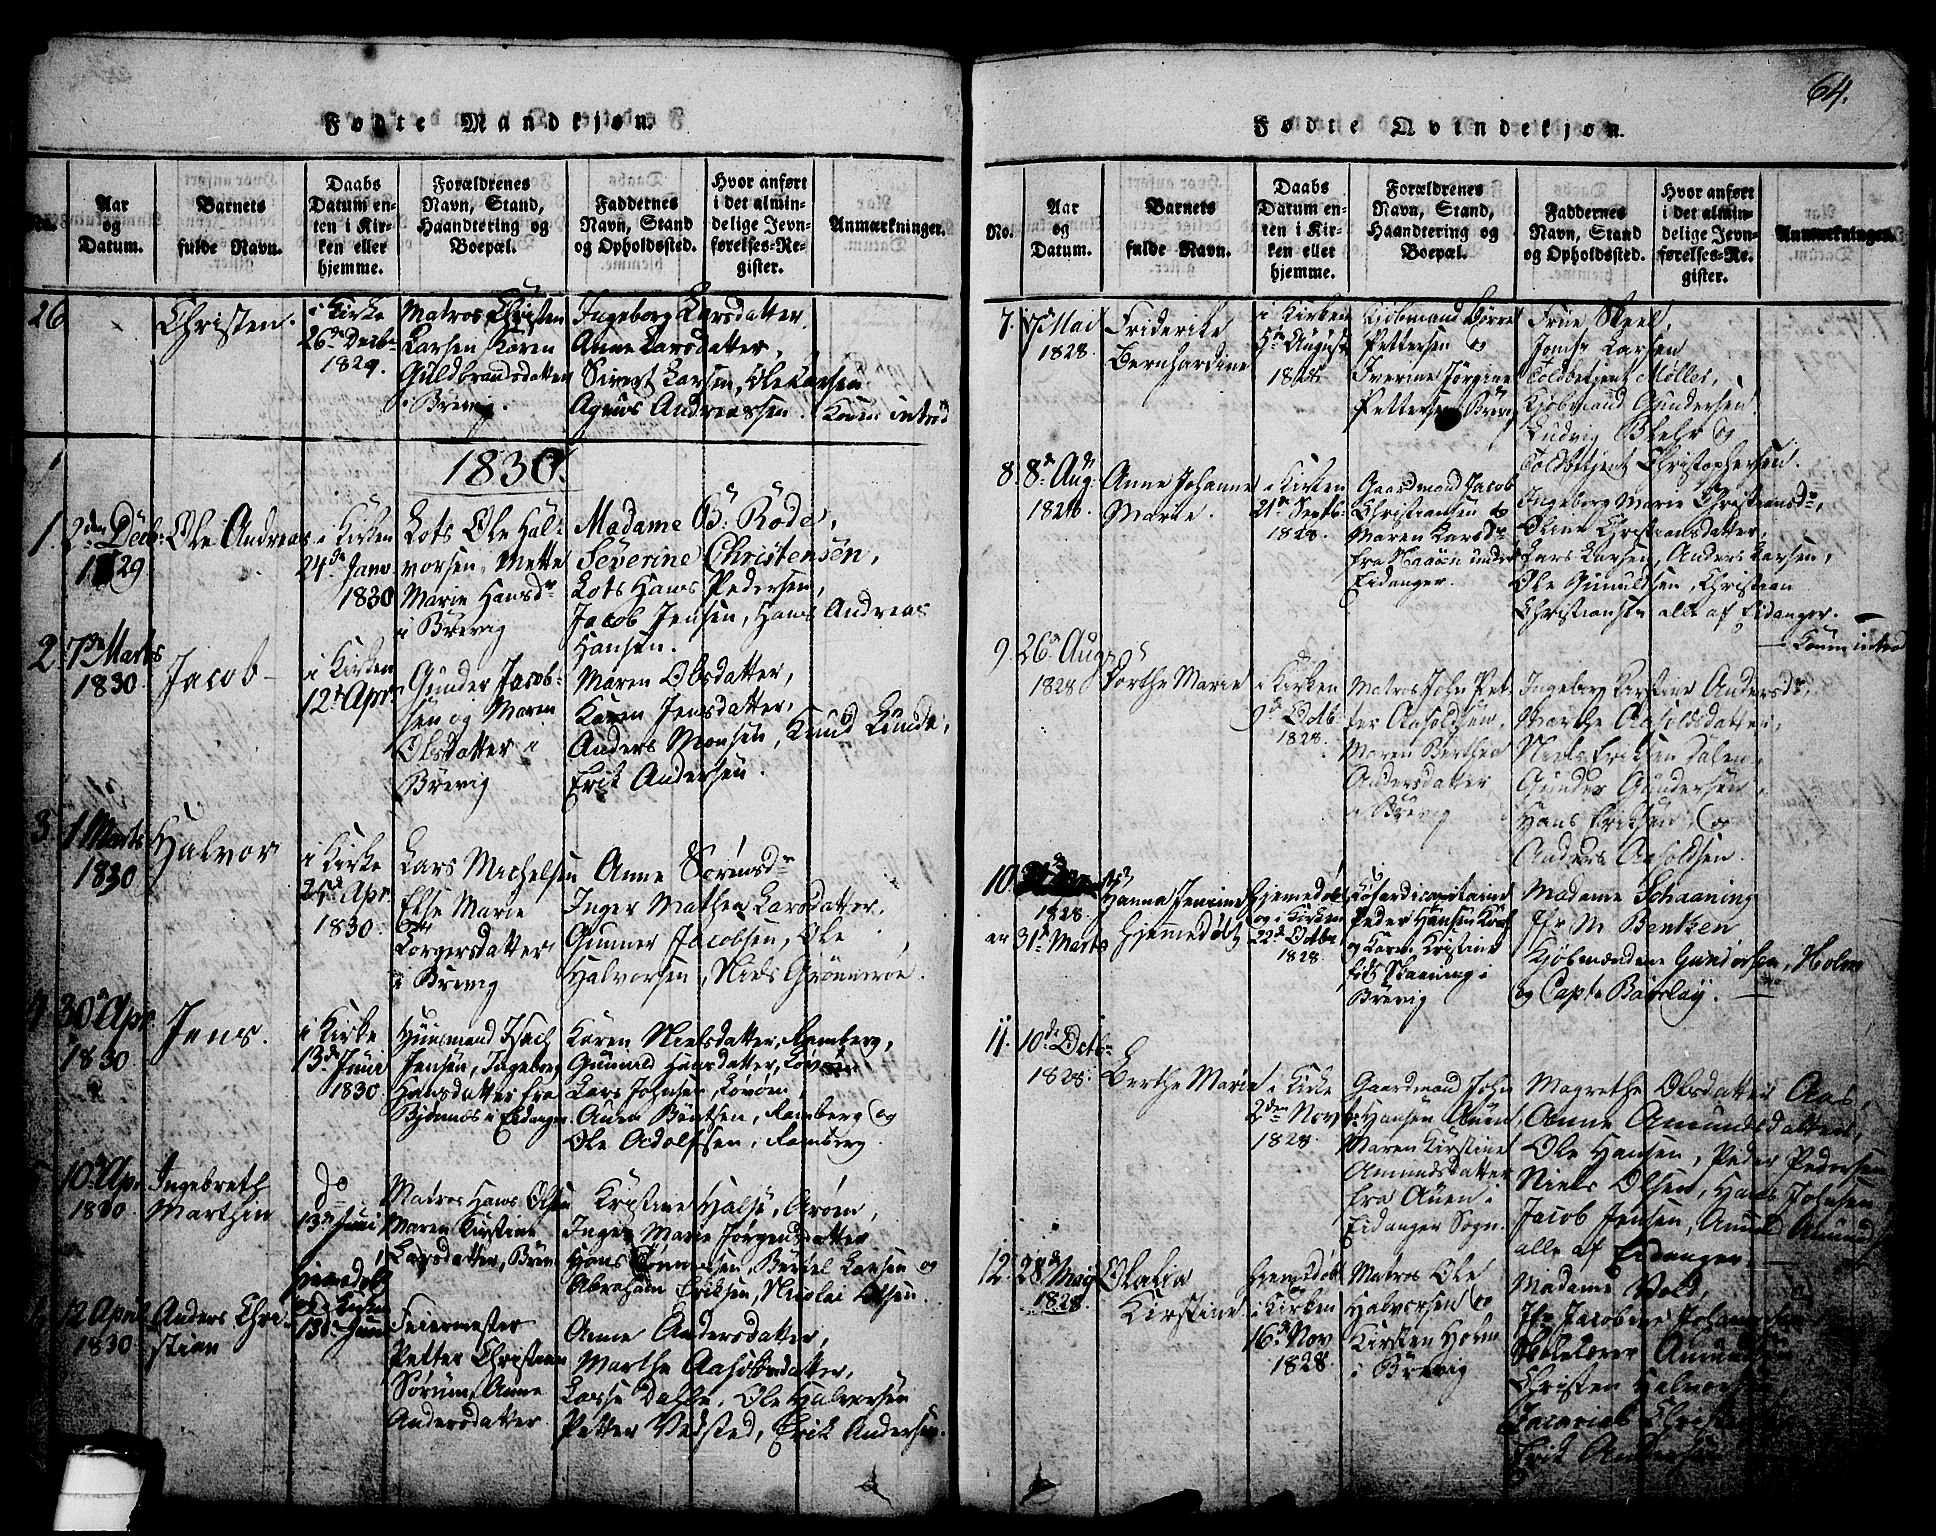 Fødte Mandkjøn.
No.
Aar
og
Datum.
Barnets
fulde Navn.
Daabs
Datum en-
ten i Kir-
ken eller
hjemme.
Forældrenes
Navn, Stand,
Haandtering og
Boepæl.
Faddernes
Navn, Stand
og Opholdssted.
Hvor anført
i det almin-
delige Jevn-
førelses-Re-
gister.
Anmærkninger.
26
Christen.
i Kirke
26de Decbr
1829.
Matros Christen
Larsen Karen
Guldbrandsdatter
i Brevig.
Ingeborg Larsdatter,
Anne Larsdatter,
Sivert Larsen, Ole Larsen
Andreassen.
Konen introd
1830.
1.
2den Decb:
1829
Ole Andreas
i Kirken
24de Janv
1830
Lots Ole Hal-
vorsen, Mette
Marie Hansdr
i Brevig
Madame B: Rode,
Severine Christensen,
Lots Hans Pedersen,
Jacob Jensen, Hans Andreas
Hansen.
2.
7de Marts
1830.
Jacob
i Kirken
12te Apr.
Gunder Jacob-
sen og Maren
Olsdatter i
Brevig
Maren Olsdatter,
Karen Jensdatter,
Anders Monsen, Knud Lunde,
Erik Andersen.
3.
1 Marts
1830
Halvor
i Kirke
25de Apr.
1830.
Lars Michelsen
Else Marie
Torgersdatter
i Brevig
Anne Sørensdr
Inger Mathea Larsdatter,
Gunner Jacobsen, Ole
Halvorsen, Niels Grønnerøe.
4.
30de Apr
1830
Jens.
i Kirke
13de Juni
1830
Huusmand Isach
Jensen, Ingeborg
Hansdatter fra
Bjønnes i Eidanger.
Karen Nielsdatter, Ramberg,
Gunild Hansdatter, Løvøen
Lars Johnsen Løvøen,
Bentsen, Ramberg og
Ole Adolfssen, Ramberg.
5
10de Apr.
1830
Ingebreth
Marthin
do
13de Juni
Matros Hans Olsen
Maren Kirstine
Larsdatter, Brevi
Kristine Halse, Arøen,
Inger Marie Jørgensdatter
Hans Larsen og
Abraham Eriksen, Nicolai Olsen.
12 April
1830
Anders Chri-
stian
Hjemedøbt
og i Kirken
13de Juni
Feiermester
Petter Christian
Sørum, Anne
Andersdatter
Anne Andersdatter,
Marthe Aasoldsdatter,
Lasse Dalle, Ole Halvorsen
Petter Vedsted, Erik Andersen.
64.
Fødte Qvindekjøn.
No.
Aar
og
Datum.
Barnets
fulde Navn.
Daabs
Datum en-
ten i Kir-
ken eller
hjemme.
Forældrenes
Navn, Stand,
Haandtering og
Boepæl.
Faddernes
Navn, Stand
og Opholdssted.
Hvor anført
i det almin-
delige Jevn-
førelses-Re-
gister.
Anmærkninger.
7.
7de Mai
1828.
Friderike
Bernhardine
i Kirken
5te August
1828
Kjøbmand Børre
Pettersen og
Iverine Jørgine
Pettersen Brevig
Frue Skeel,
Jomfr Larsen
Toldbetjent Møller,
Kjøbmand Gundersen.
Ludvig Blehr og
Toldbetjent Christophersen.
8.
8de Aug.
1828.
Anne Johanne
Marie.
i Kirken
21de Septb.
1828.
Gaardmand Jacob
Christiansen og
Maren Larsdr
fra under
Eidanger.
Ingeborg Marie Christiansdr,
Oline Christiansdatter,
Lars Larsen, Anders Larsen,
Ole Gunuldsen, Christian
Christiansen alle af Eidanger.
Konen introd
9.
26de Aug
1828
Dorthe Marie
i Kirken
9de Octb.
1828.
Matros John Pet-
ter Aasoldsen,
Maren Berthea
Andersdatter
i Brevig
Ingeborg Kirstine Andersdr,
Marthe Aasoldsdatter,
Niels Eriksen Dalen,
Gunder Gundersen,
Hans Eriksen, og
Anders Aasoldsen.
10.
1828.
31te Marts
Hanna Jensine
Hjemedøbt
Hjemedøbt
og i Kirken
22de Octbr
1828.
Cofardicapitaine
Peder Hansen
og Karen Kristine
fød Skaaning i
Brevig
Madame Schaaning
Jfr M Bentzen
Kjøbmændene Gundersen, Holm
og Captn Barclay.
11.
10de Octb
1828.
Berthe Marie
i Kirke
2den Nov
1828.
Gaardmand John
Hansen Auen,
Maren Kirstine
Amundsdatter
fra Auen i
Eidanger Sogn.
Magrethe Olsdatter Aas,
Anne Amundsdatter,
Ole Hansen, Peder Pedersen
Niels Olsen, Hans Johnsen
Jacob Jensen, Amund Amunds
alle af Eidanger
12.
28de May
1828.
Olalia
Kirstine
Hjemedøbt
i Kirken
16de Nov
1828.
Matros Ole
Halvorsen og
Kirsten Holm
i Brevig
Madame Vold,
Jfr Jacobine
Skolelærer Amundsen
Christen Halvorsen,
Zacarias
Erik Andersen